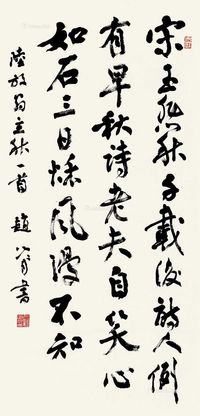 宋玉悲秋千載後詩人例
有早秋詩老夫自笑心
如石三日秋風漫不知
陸放翁立秋一首 趙冷月書